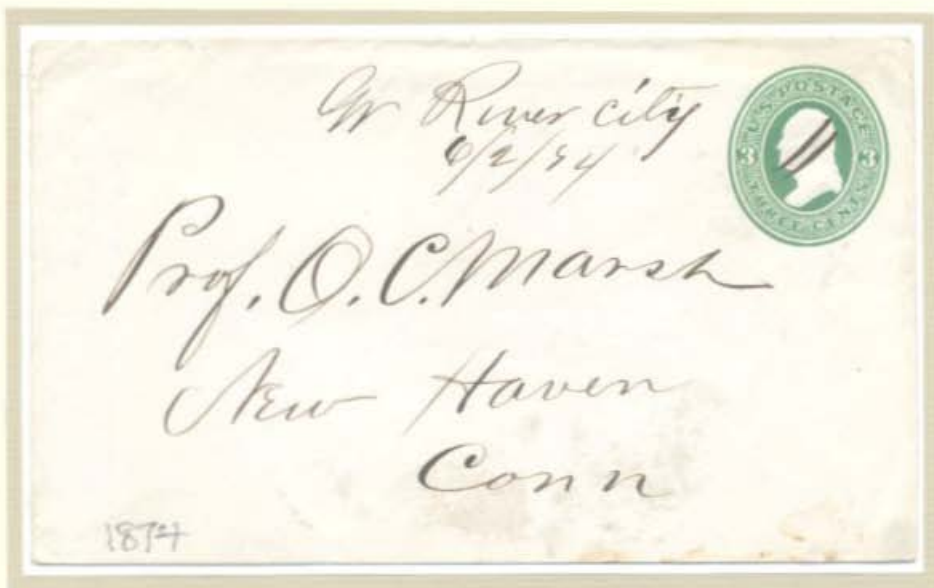 Gr River City
6/2/74
U.S. POSTAGE
3 3
THREE CENTS
Prof. O. C. Marsh
New Haven
Conn
1874